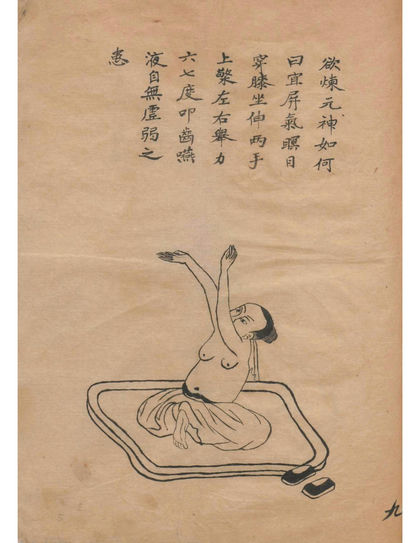 欲煉元神如何
曰宜屏氣瞑目
穿膝坐伸兩手
上檠左右舉力
六七度叩齒嚥
液自無虛弱之
恙
九